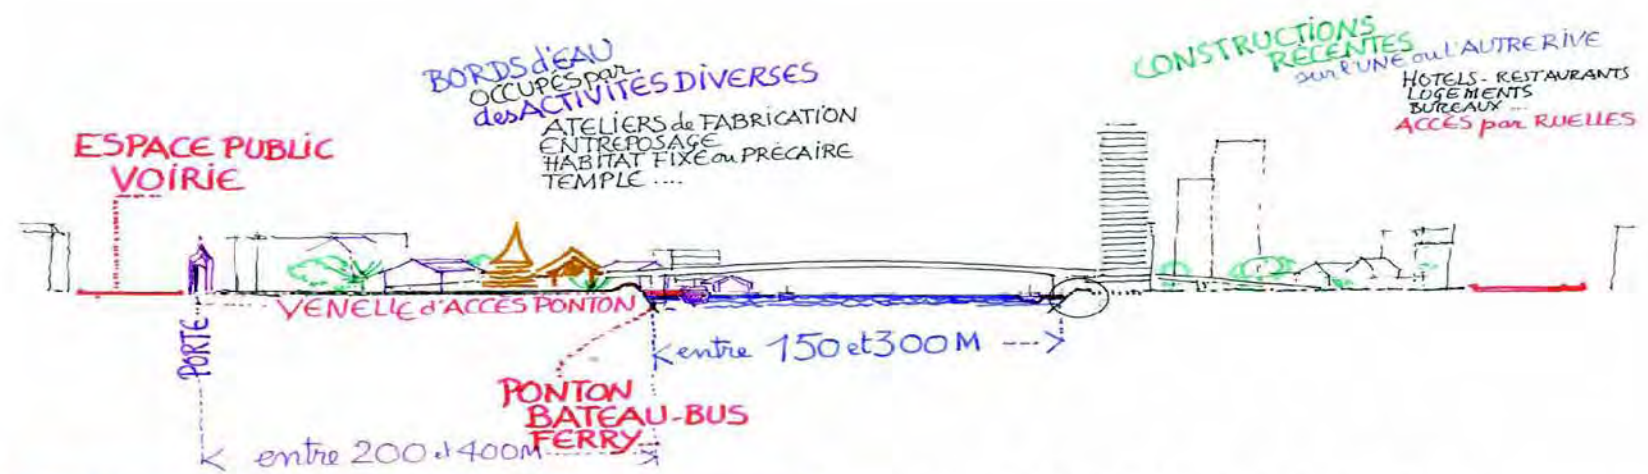 BORDS d'EAU
OCCUPÉS par
des ACTIVITÉS DIVERSES
ATELIERS de FABRICATION
ENTREPOSAGE
HABITAT FIXE ou PRÉCAIRE
TEMPLE ....
CONSTRUCTIONS
RÉCENTES
sur l'UNE ou L'AUTRE RIVE
HOTELS - RESTAURANTS
LOGEMENTS
BUREAUX ...
ACCÈS par RUELLES
ESPACE PUBLIC
VOIRIE
VENELLE d'ACCÈS PONTON
PORTE
entre 150 et 300 M
PONTON
BATEAU-BUS
FERRY
entre 200 et 400M